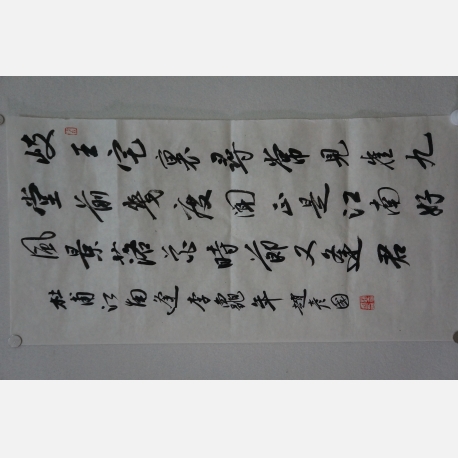 岐王宅裏尋常見崔九
堂前幾度聞正是江南好
風景落花時節又逢君
杜甫江南逢李龜年 趙國